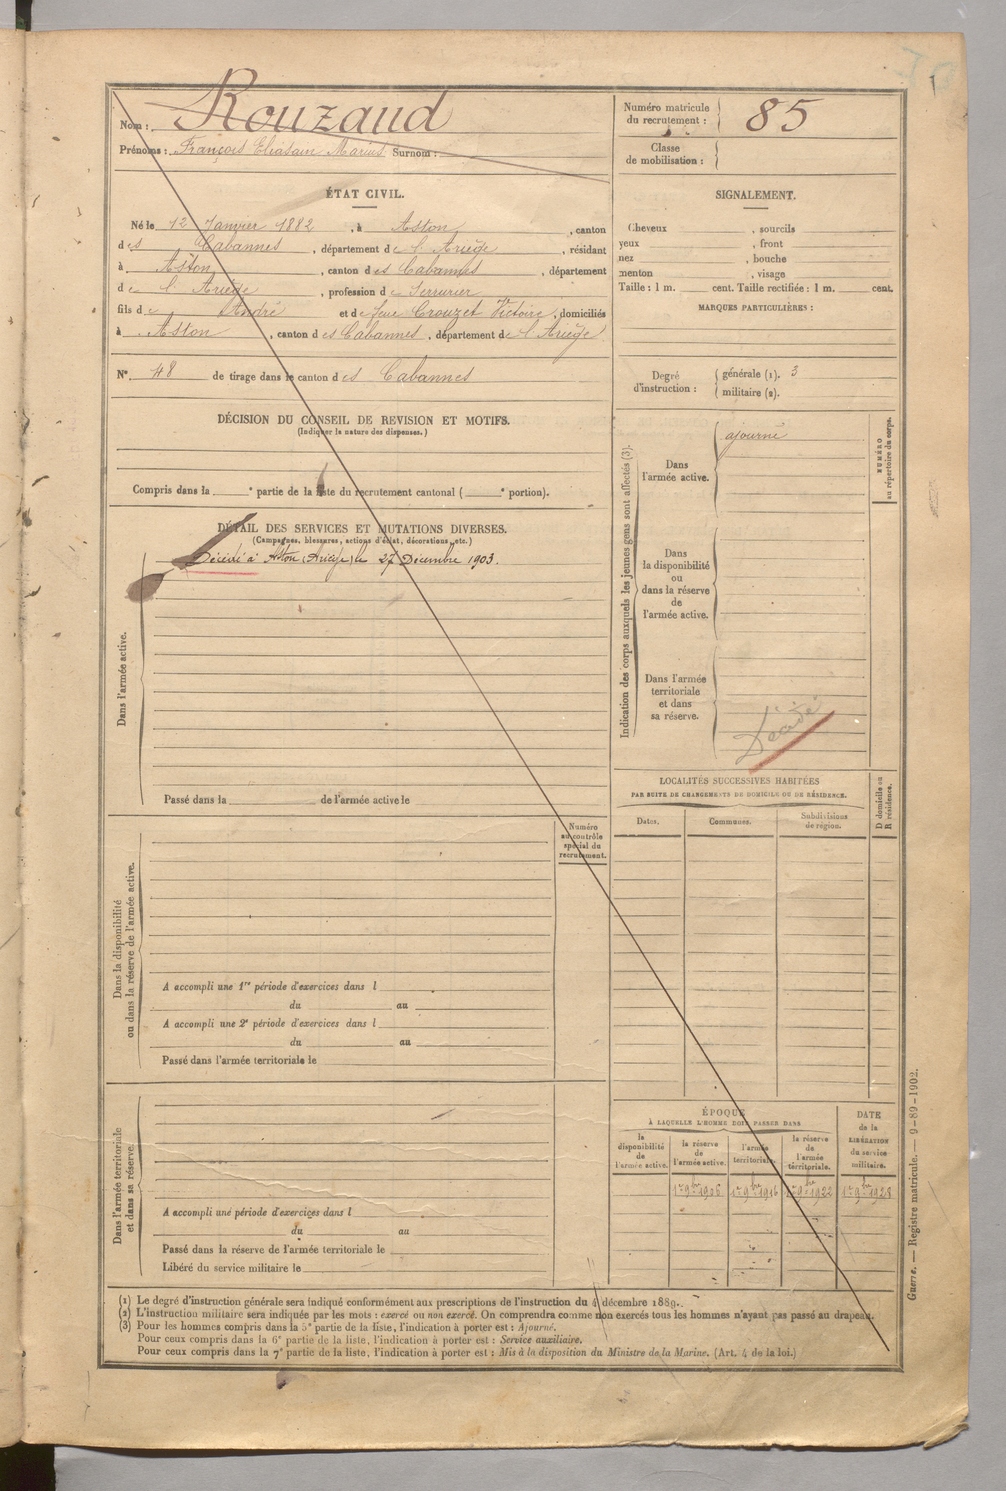 Nom : Rouzaud
Prénoms : François Eliasain Marius Surnom :
Numéro matricule du recrutement : 85
Classe de mobilisation :
ÉTAT CIVIL.
Né le 12 Janvier 1882, à Aston, canton
des Cabannes, département de l'Ariège, résidant
à Aston, canton des Cabannes, département
de l'Ariège, profession de Serrurier
fils de André et de feue Crouzet Victoire, domiciliés
à Aston, canton des Cabannes, département de l'Ariège
N° 48 de tirage dans le canton des Cabannes
SIGNALEMENT.
Cheveux , sourcils
yeux , front
nez , bouche
menton , visage
Taille : 1 m. cent. Taille rectifiée : 1 m. cent.
MARQUES PARTICULIÈRES :
Degré d'instruction : générale (1). 3
militaire (2).
DÉCISION DU CONSEIL DE REVISION ET MOTIFS.
(Indiquer la nature des dispenses.)
Compris dans la e partie de la liste du recrutement cantonal ( e portion).
DÉTAIL DES SERVICES ET MUTATIONS DIVERSES.
(Campagnes, blessures, actions d'éclat, décorations, etc.)
Dans l'armée active.
Décédé à Aston (Ariège) le 27 Décembre 1903.
Passé dans la de l'armée active le
Indication des corps auxquels les jeunes gens sont affectés (3).
NUMÉRO au répertoire du corps.
Dans l'armée active.
ajourné
Dans la disponibilité ou dans la réserve de l'armée active.
Dans l'armée territoriale et dans sa réserve.
Décédé
LOCALITÉS SUCCESSIVES HABITÉES
PAR SUITE DE CHANGEMENTS DE DOMICILE OU DE RÉSIDENCE.
Dates. Communes. Subdivisions de région.
D domicile ou R résidence.
Numéro au contrôle spécial du recrutement.
Dans la disponibilité ou dans la réserve de l'armée active.
A accompli une 1re période d'exercices dans l
du au
A accompli une 2e période d'exercices dans l
du au
Passé dans l'armée territoriale le
Dans l'armée territoriale et dans sa réserve.
A accompli une période d'exercices dans l
du au
Passé dans la réserve de l'armée territoriale le
Libéré du service militaire le
ÉPOQUE
À LAQUELLE L'HOMME DOIT PASSER DANS
la disponibilité de l'armée active.
la réserve de l'armée active.
l'armée territoriale.
la réserve de l'armée territoriale.
DATE de la LIBÉRATION du service militaire.
1er 9bre 1906 1er 9bre 1916 1er 9bre 1922 1er 9bre 1928
(1) Le degré d'instruction générale sera indiqué conformément aux prescriptions de l'instruction du 4 décembre 1889.
(2) L'instruction militaire sera indiquée par les mots : exercé ou non exercé. On comprendra comme non exercés tous les hommes n'ayant pas passé au drapeau.
(3) Pour les hommes compris dans la 5e partie de la liste, l'indication à porter est : Ajourné.
Pour ceux compris dans la 6e partie de la liste, l'indication à porter est : Service auxiliaire.
Pour ceux compris dans la 7e partie de la liste, l'indication à porter est : Mis à la disposition du Ministre de la Marine. (Art. 4 de la loi.)
Guerre. — Registre matricule. — 9-89-1902.